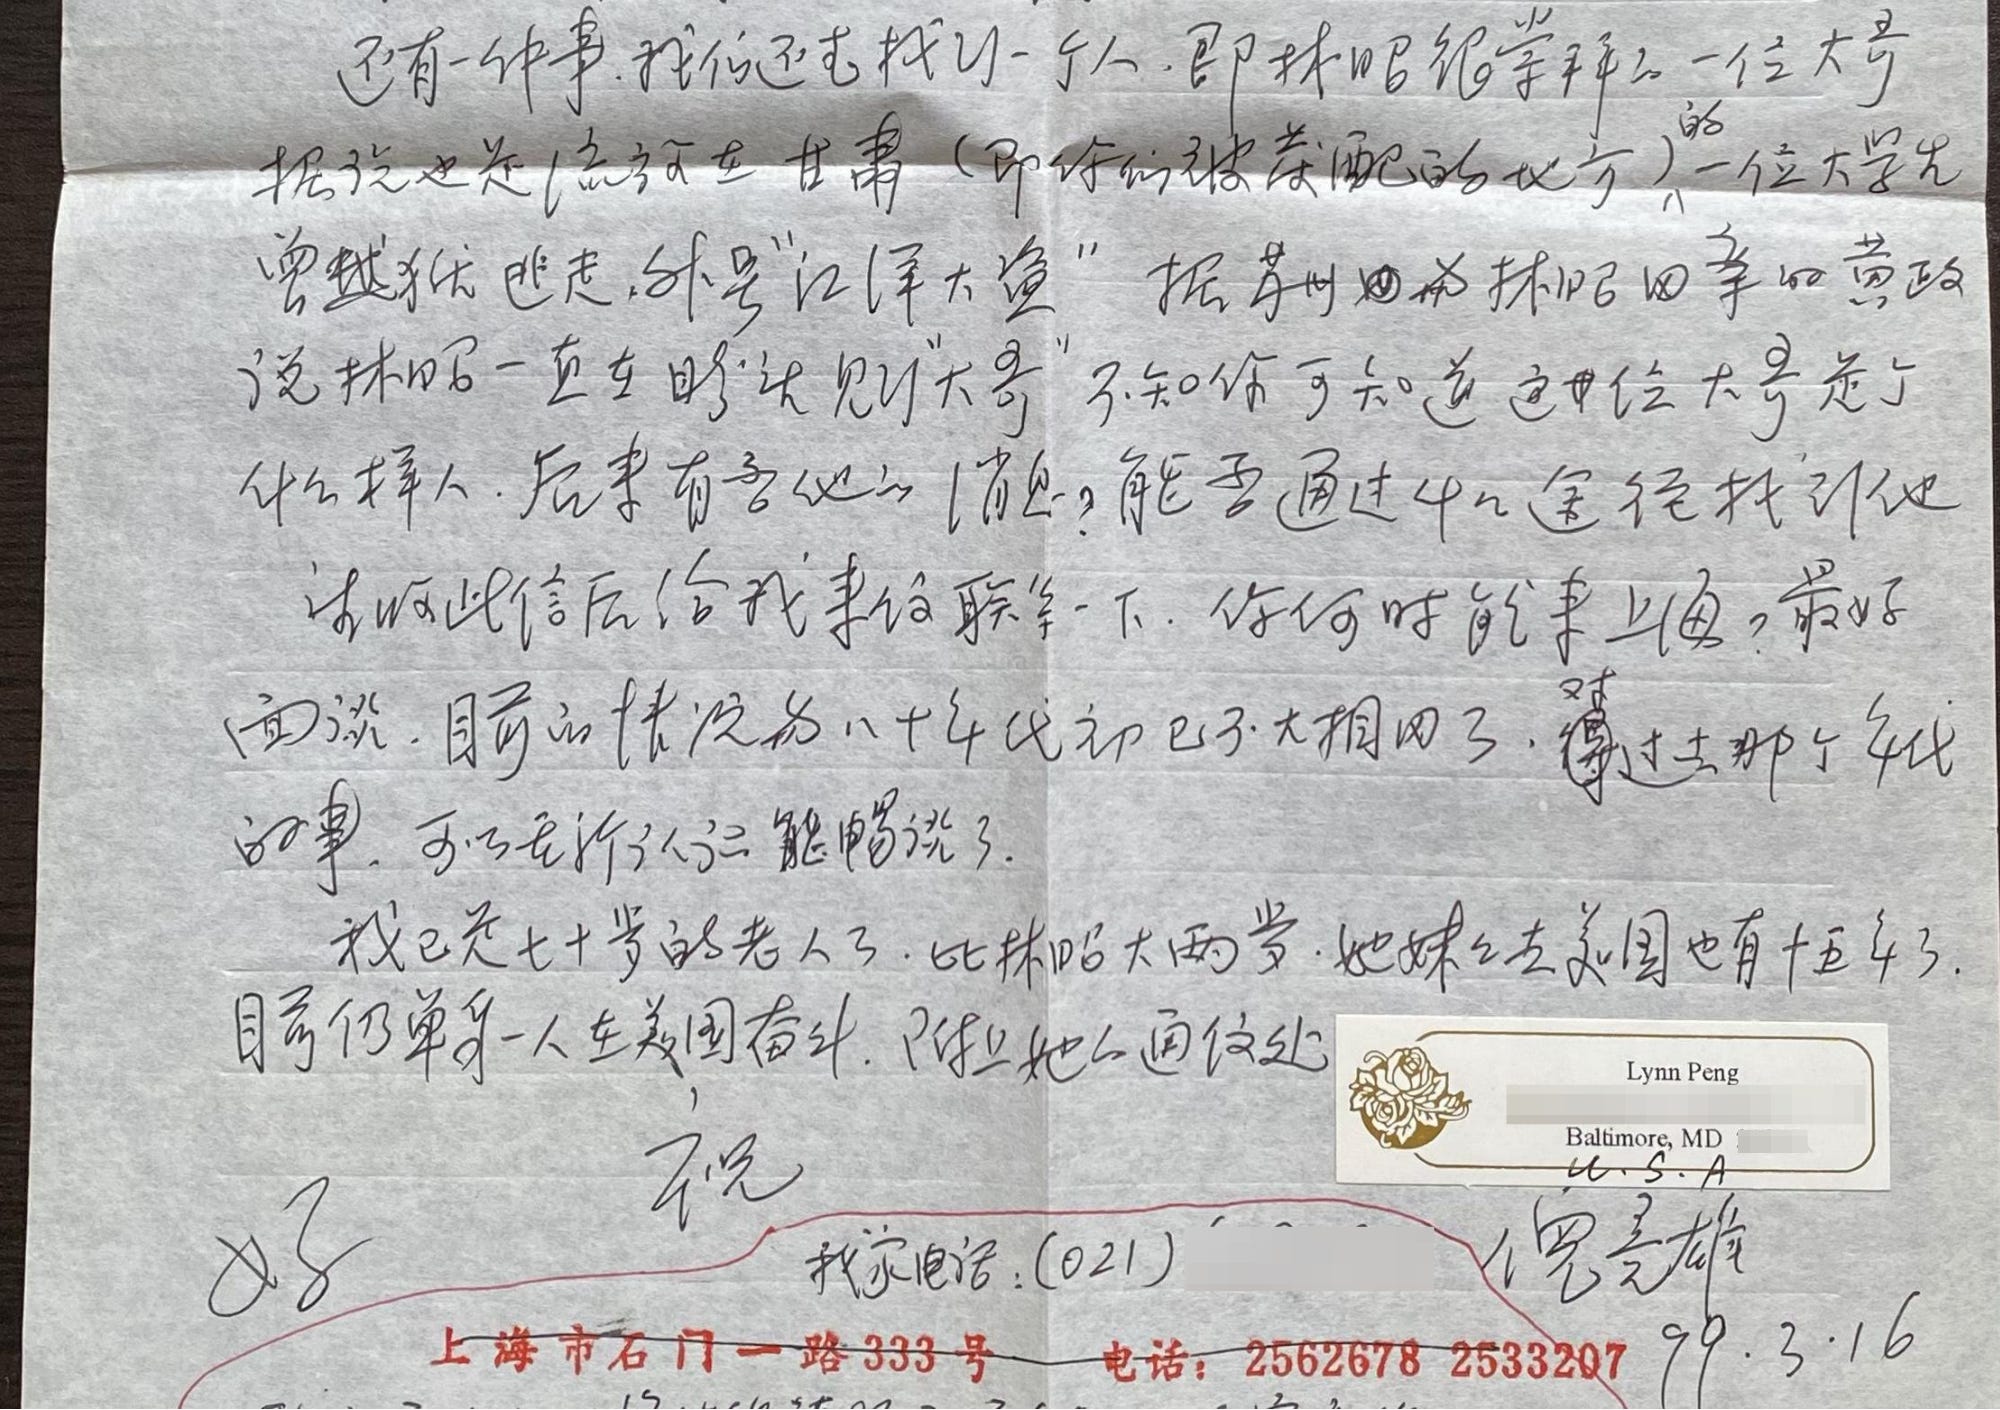 还有一件事.我们还去找到一个人.即林昭很崇拜的一位大哥
据说也是流放在甘肃(即你们被发配的地方)的一位大学生
曾越狱逃走,外号"江洋大盗" 据苏州因为林昭同案的黄政
说林昭一直在盼望见到"大哥" 不知你可知道这位大哥是个
什么样人.后来有否他的消息?能否通过什么途径找到他
请收此信后给我来信联系一下.你何时能来上海?最好
面谈.目前的情况与八十年代初已不大相同了.对过去那个年代
的事.可以无所顾忌能畅谈了.
我已是七十岁的老人了.比林昭大两岁.她妹妹去美国也有十五年了.
目前仍单身一人在美国奋斗.附上她的通信处
Lynn Peng
Baltimore, MD
U.S.A
祝
好
我家电话:(021)
倪竞雄
99.3.16
上海市石门一路333号 电话:2562678 2533207